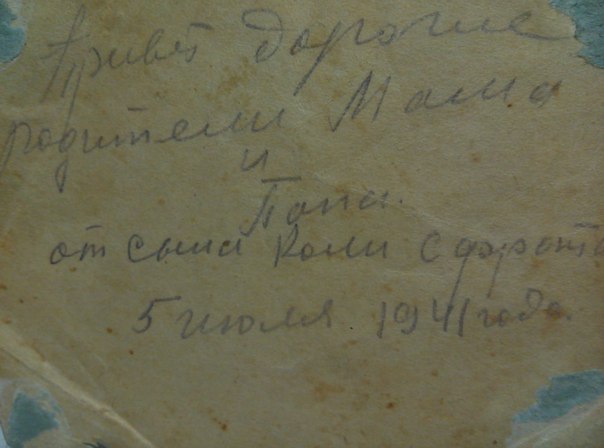 Привет дорогие
родители Мама
и
Папа.
от сына Коли с фронта
5 июля 1941 года.